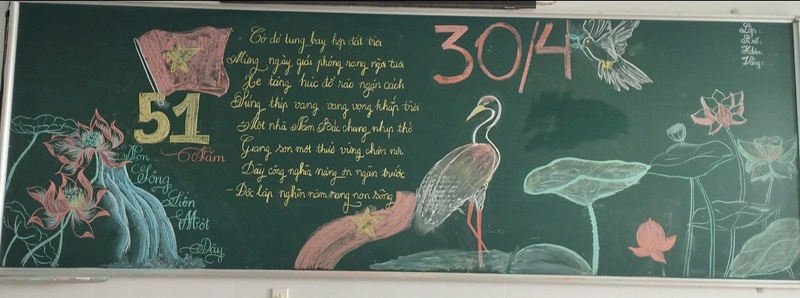 51
Năm
Non
Sông
Liền
Một
Dãy
Cờ đỏ tung bay hợp đất trời
Mừng ngày giải phóng rạng ngời tươi
Xe tăng húc đổ rào ngăn cách
Súng thép vang vang vọng khắp trời
Một nhà Nam Bắc chung nhịp thở
Giang sơn một thuở vững chân nơi
Dày công nghĩa nặng ơn ngàn trước
- Độc lập nghìn năm rạng non sông
30/4
Lớp:
Sĩ số:
Hdiện:
Vắng:...